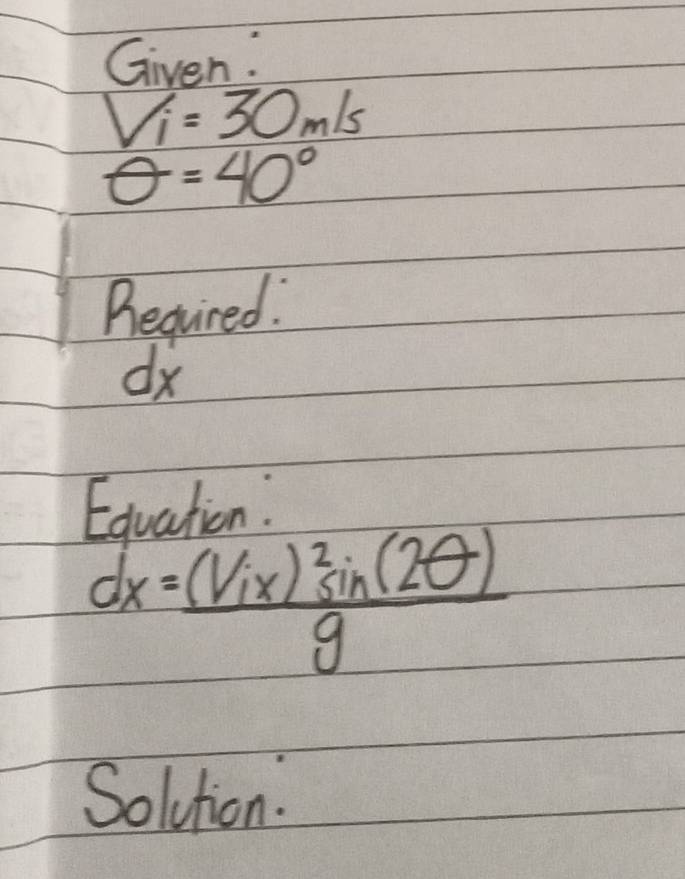 Given:
Vi = 30m/s
θ = 40°
Required:
dx
Equation:
dx = (Vix)² sin (2θ)
g
Solution: